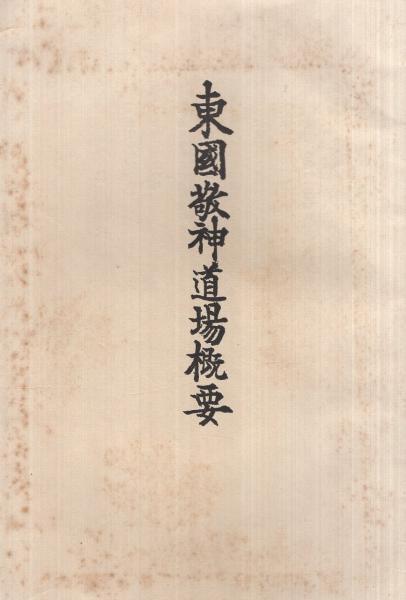 東國敬神道場概要